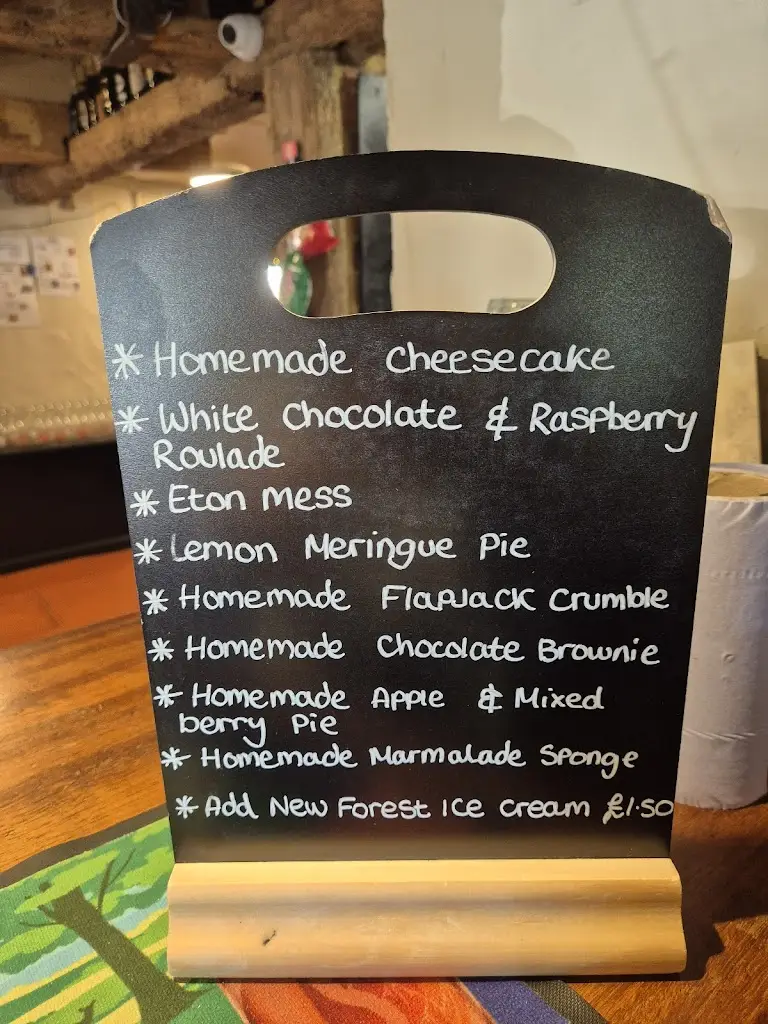 * Homemade cheesecake
* White Chocolate & Raspberry
Roulade
* Eton mess
* Lemon Meringue Pie
* Homemade FlapJack Crumble
* Homemade Chocolate Brownie
* Homemade Apple & Mixed
berry Pie
* Homemade Marmalade Sponge
* Add New Forest Ice cream £1.50